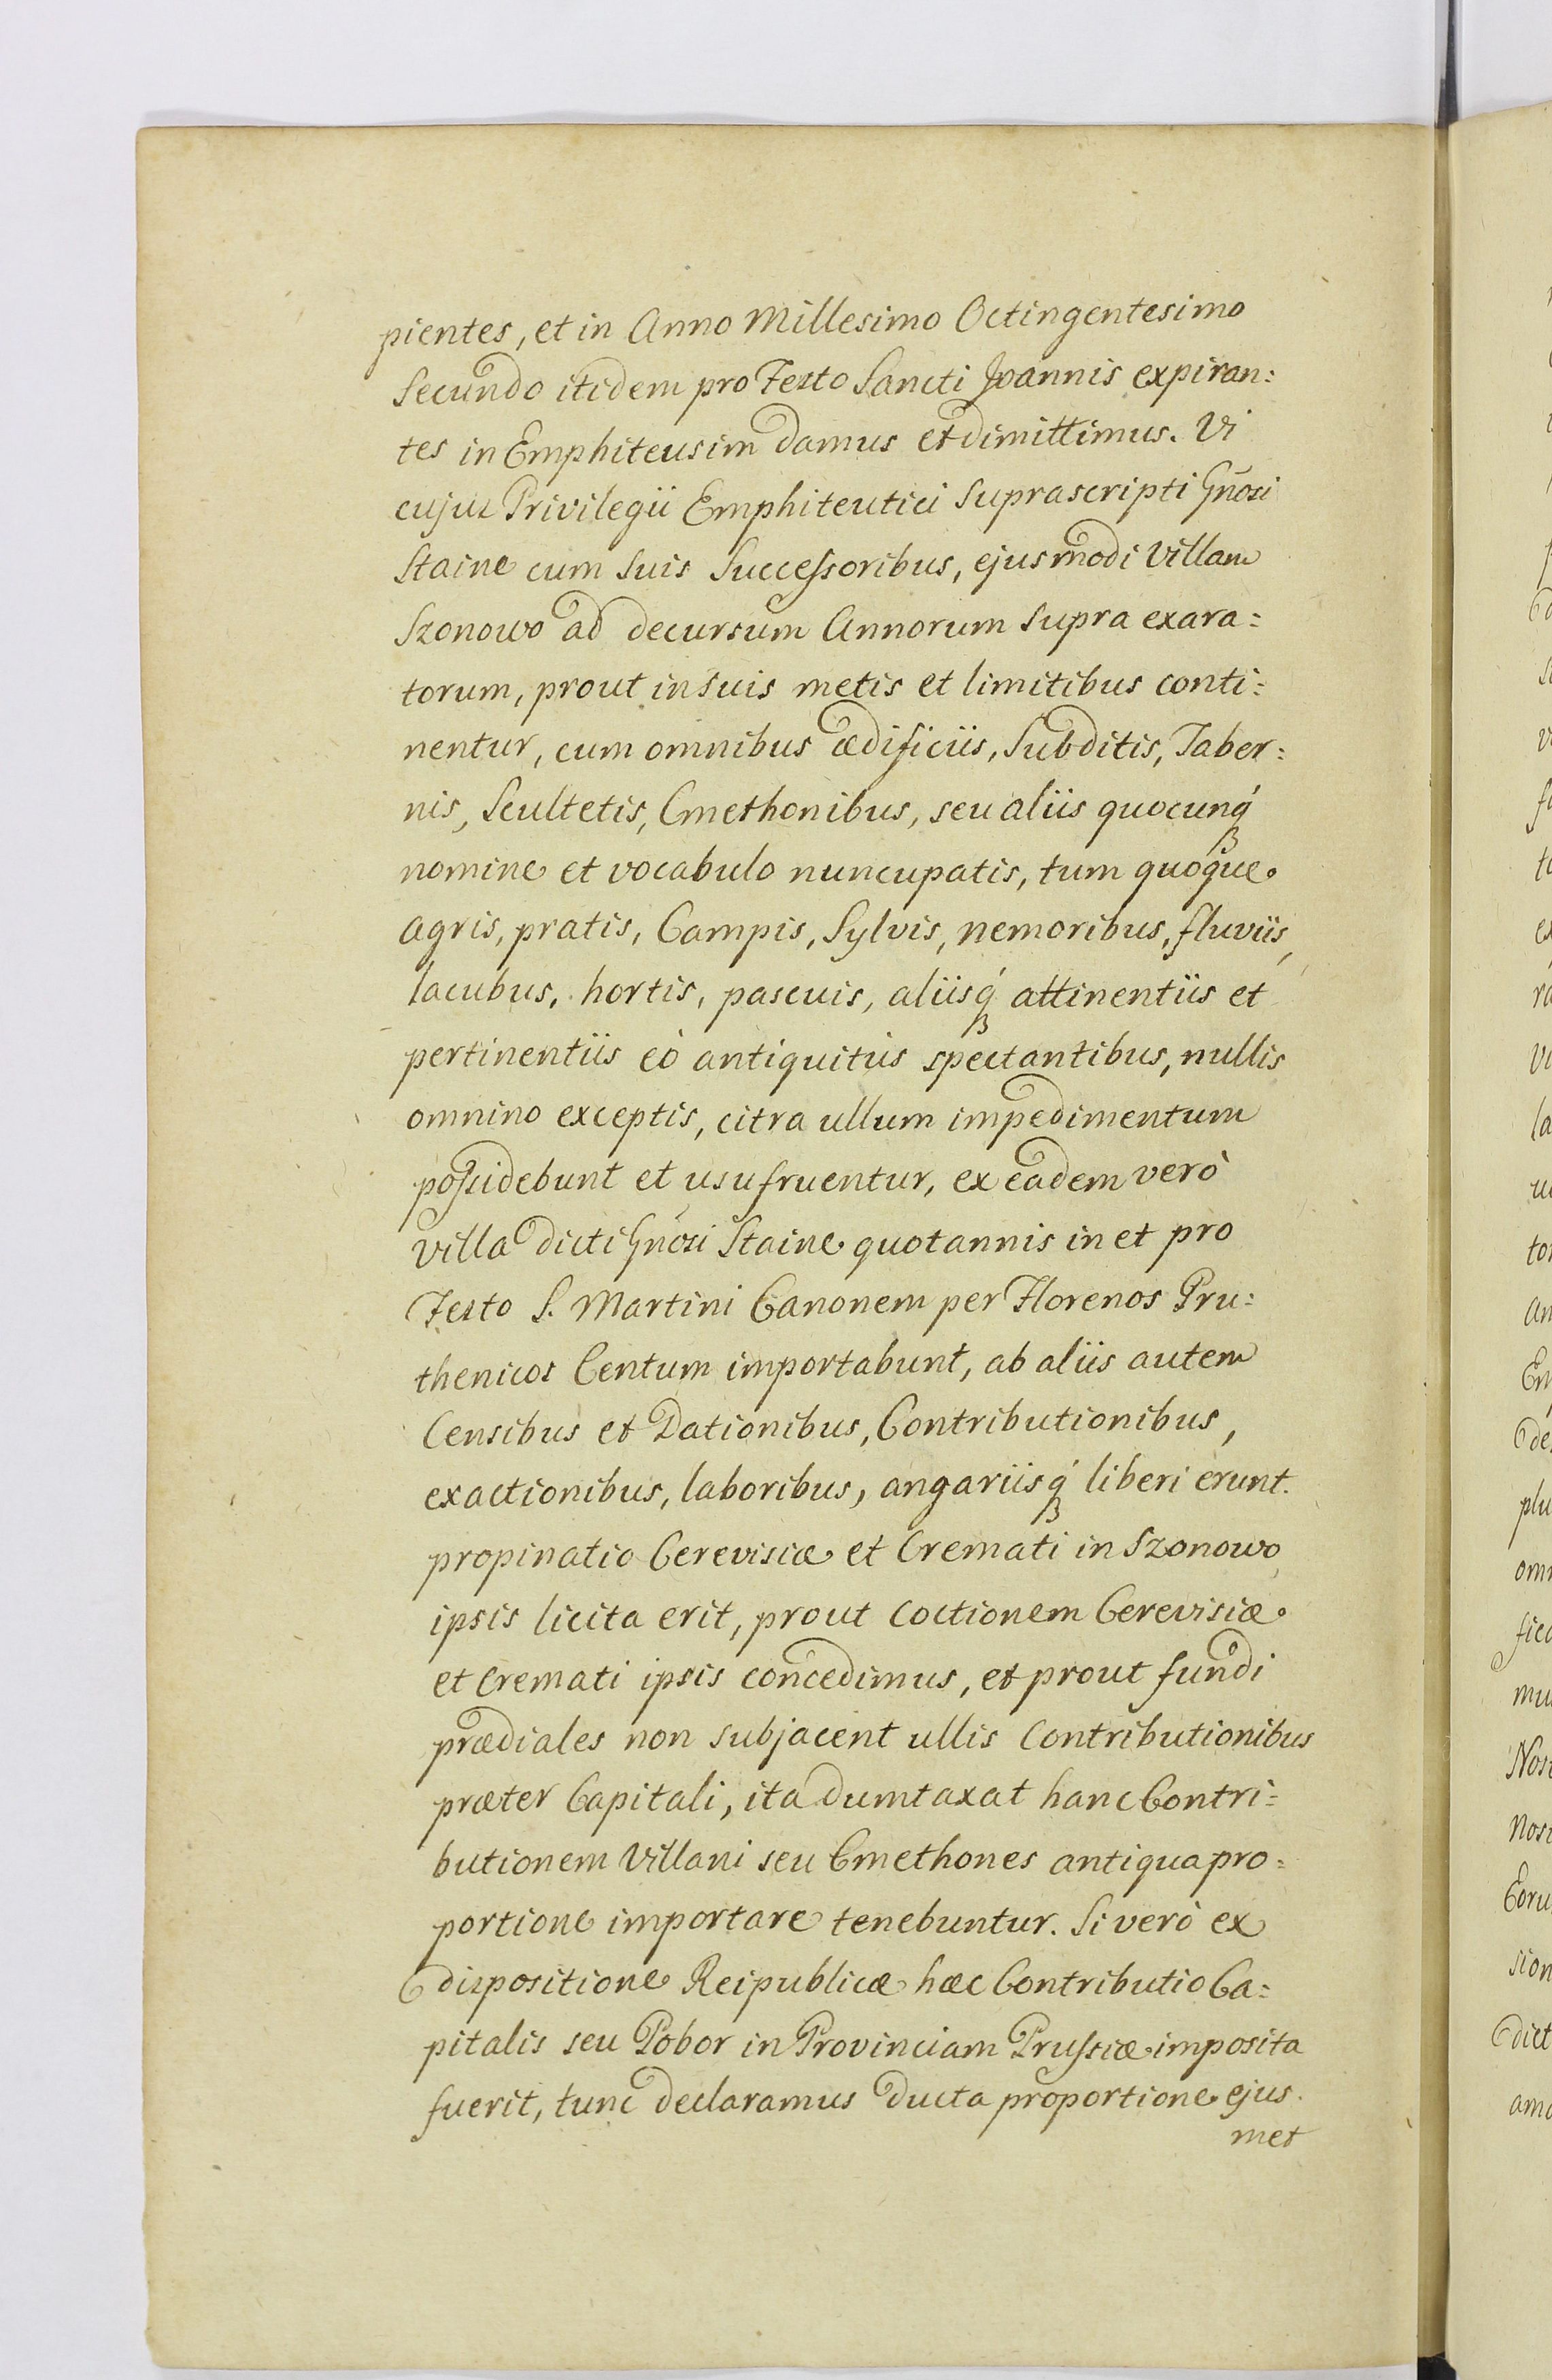 pientes, et in Anno Millesimo Octingentesimo
Secundo itidem pro Festo Sancti Joannis expiran:
tes in Emphiteusim damus et dimittimus. Vi
cujus Privilegii Emphiteutici Suprascripti Gñosi
Staine cum suis Successoribus, ejusmodi Villam
Szonowo ad decursum Annorum supra exara:
torum, prout in suis metis et limitibus conti:
nentur, cum omnibus ædificiis, Subditis, Taber:
nis, Scultetis, Cmethonibus, seu aliis quocunq́
nomine et vocabulo nuncupatis, tum quoque
agris, pratis, Campis, Sylvis, nemoribus, fluviis,
lacubus, hortis, pascuis, aliisq́ attinentiis et
pertinentiis eò antiquitùs spectantibus, nullis
omnino exceptis, citra ullum impedimentum
possidebunt et usufruentur, ex eadem verò
villa dicti Gñosi Staine quotannis in et pro
Festo S. Martini Canonem per Florenos Pru:
thenicos Centum importabunt, ab aliis autem
Censibus et Dationibus, Contributionibus,
exactionibus, laboribus, angariisq́ liberi erunt.
propinatio Cerevisiæ et Cremati in Szonowo
ipsis licita erit, prout coctionem Cerevisiæ
et Cremati ipsis concedimus, et prout fundi
prædiales non subjacent ullis Contributionibus
præter Capitali, ita dumtaxat hanc Contri:
butionem Villani seu Cmethones antiqua pro:
portione importare tenebuntur. Si verò ex
dispositione Reipublicæ hæc Contributio Ca:
pitalis seu Pobor in Provinciam Prussiæ imposita
fuerit, tunc declaramus ducta proportione ejus
met